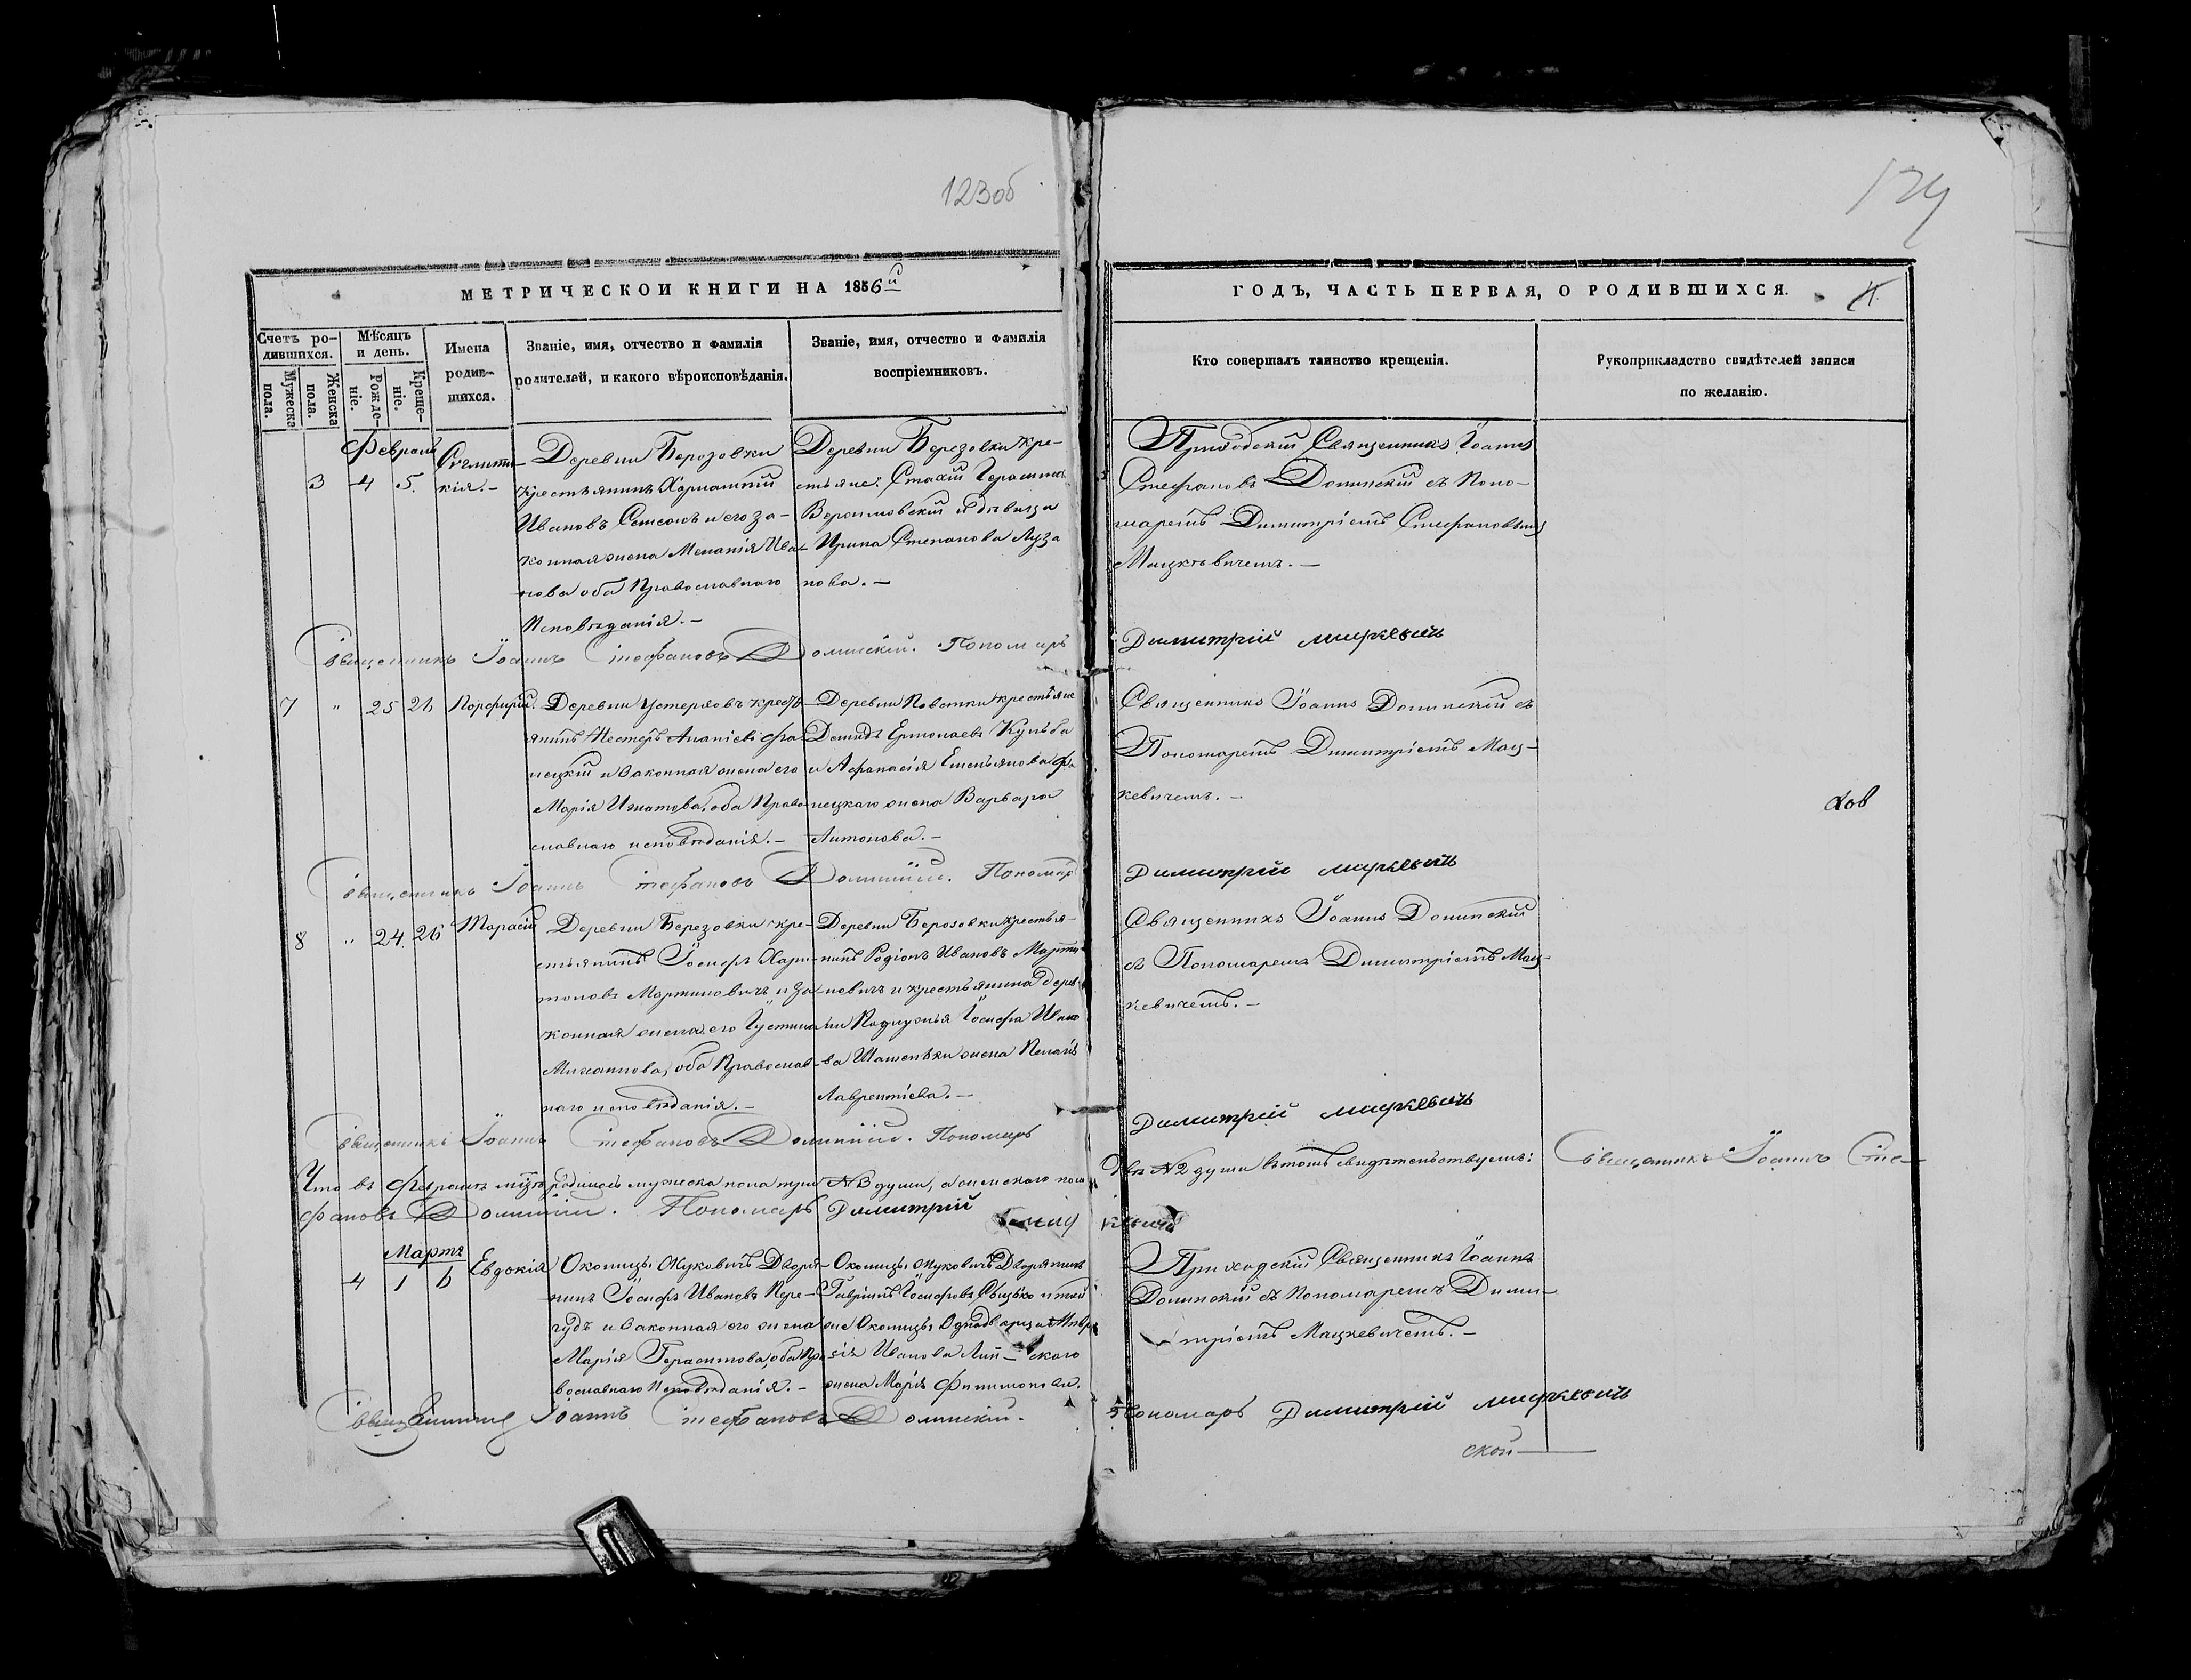 123об
124
МЕТРИЧЕСКОЙ КНИГИ НА 1856й
ГОДЪ, ЧАСТЬ ПЕРВАЯ, О РОДИВШИХСЯ.
4.
Счетъ родившихся.
Мужеска пола.
Женска пола.
Мѣсяцъ и день.
Рожденіе.
Крещеніе.
Имена родившихся.
Званіе, имя, отчество и фамилія
родителей, и какого вѣроисповѣданія.
Званіе, имя, отчество и фамилія
воспріемниковъ.
Кто совершалъ таинство крещенія.
Рукоприкладство свидѣтелей записи
по желанію.
Февраль
3 4 5.
Деревни Березовки
крестьянинъ
Ивановъ и его за-
конная жена Меланія Ива-
нова оба Православнаго
Исповѣданія. –
Деревни Березовки кре-
стьяне:
и дѣвица
Ирина Степанова Луза
нова. –
Приходскій Священникъ Іоаннъ
Стефановъ Долинскій съ Поно-
маремъ Димитріемъ Стефановымъ
Мацкѣвичемъ. –
Священникъ Іоаннъ Стефановъ Долинскій. Пономарь
Димитрій Мацкевичь
7 " 25 26 Порфирій.
Деревни кресть-
янинъ Несторъ Ананіевъ
и законная жена его
Марія Игнатова, оба Право-
славнаго исповѣданія. –
Деревни крестьяне
Демидъ Ермолаевъ Кульба
и Афанасія Емельянова
жена Варвара
Антонова. –
Священникъ Іоаннъ Долинскій съ
Пономаремъ Димитріемъ Мац-
кевичемъ. –
ков
Священникъ Іоаннъ Стефановъ Долинскій. Пономарь
Димитрій Мацкевичь
8 " 24. 26 Тарасій
Деревни Березовки кре-
стьянинъ Іосифъ Хари-
тоновъ Мартиновичъ и за-
конная жена его Іустина
Михаилова, оба Православ-
наго исповѣданія. –
Деревни Березовки крестья-
нинъ Родіонъ Ивановъ Марти-
новичъ и крестьянина дерев-
ни Іосифа Ивано
ва жена
Лаврентіева. –
Священникъ Іоаннъ Долинскій
съ Пономаремъ Димитріемъ Мац-
кевичемъ. –
Священникъ Іоаннъ Стефановъ Долинскій. Пономарь
Димитрій Мацкевичь
Что въ Февралѣ мцѣ родилось мужеска пола три №3 души, а женскаго пола
двѣ №2 души въ томъ свидѣтельствуемъ: Священникъ Іоаннъ Сте-
фановъ Долинскій. Пономарь Димитрій
Мартъ
4 1 6 Евдокія
Околицы Жуковичъ Дворя-
нинъ Іосифъ Ивановъ Пере-
гудъ и законная его жена
Марія Герасимова, оба Пра-
вославнаго Исповѣданія. –
Околицы Жуковичъ Дворянинъ
Гавріилъ Іосифовъ и той
же Околицы Однодворца
Иванова
жена Марія Филимонова.
Приходскій Священникъ Іоаннъ
Долинскій съ Пономаремъ Дими-
тріемъ Мацкевичемъ. –
Священникъ Іоаннъ Стефановъ Долинскій.
Пономарь Димитрій Мацкевичь
ской